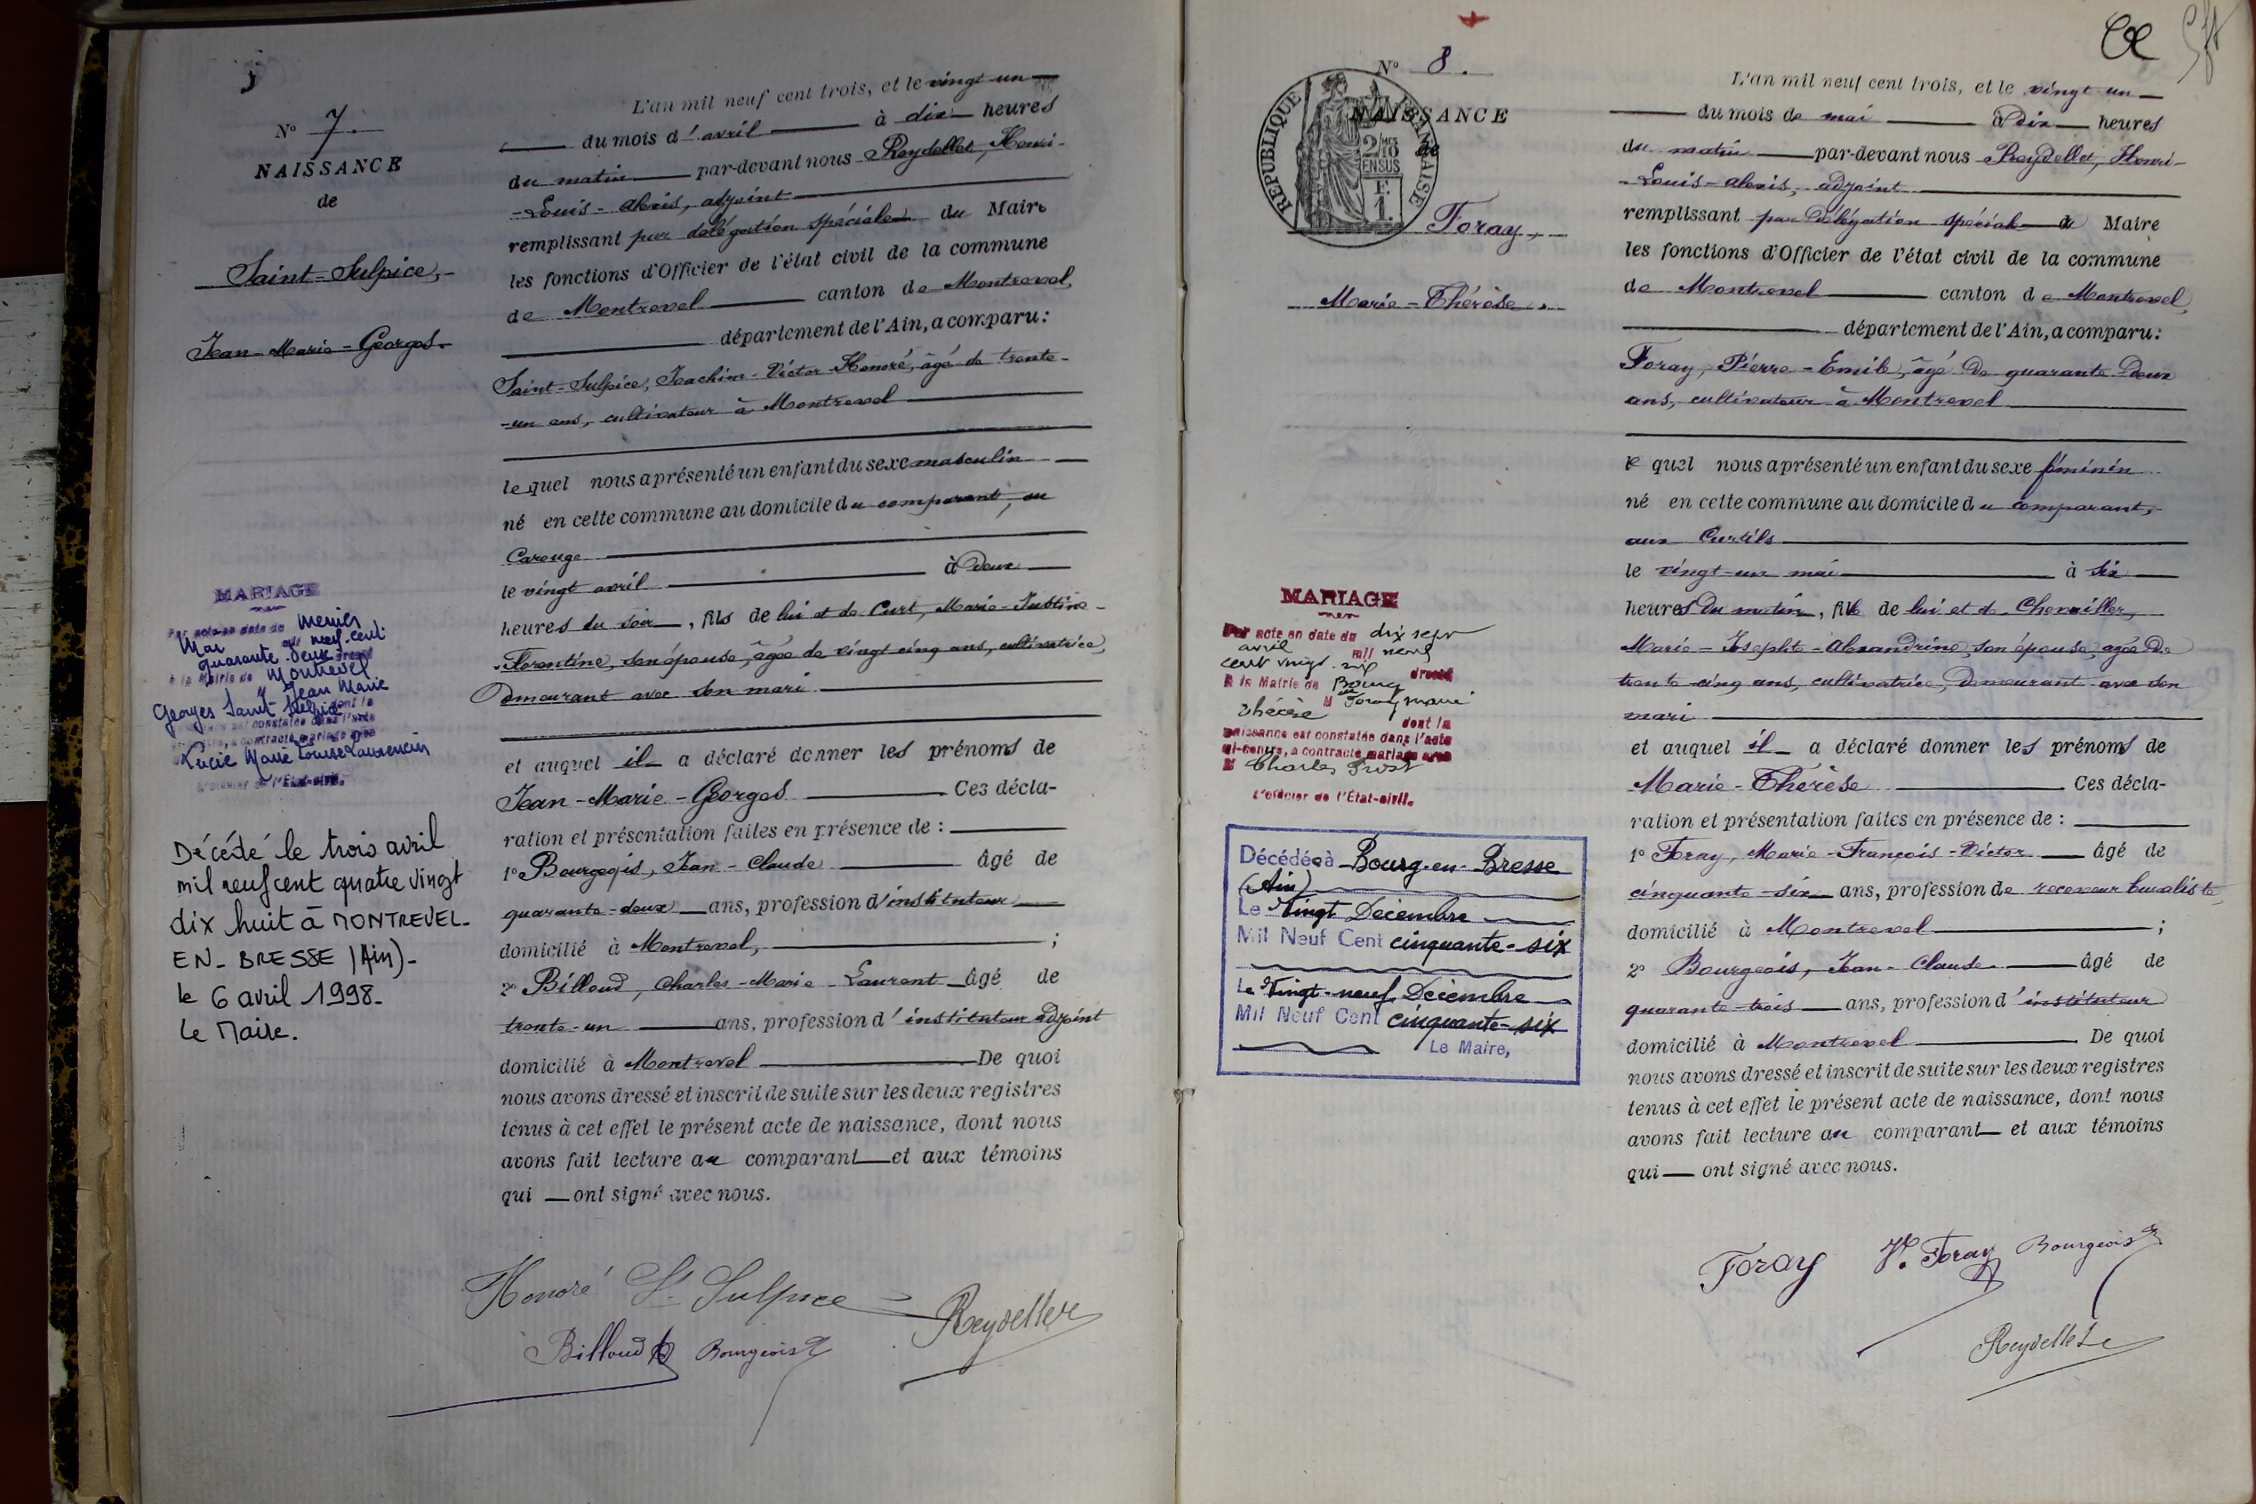 N° 7.
NAISSANCE
de
Saint-Sulpice,
Jean-Marie-Georges.
MARIAGE
Par acte en date du
Mai mil neuf cent
quarante deux dressé
à la Mairie de Montrevel
Jean Marie
Georges Saint Sulpice dont la
naissance est constatée dans l'acte
ci-contre, a contracté mariage avec
Lucie Marie Louise Laurencin
L'officier de l'État-civil.
Décédé le trois avril
mil neuf cent quatre vingt
dix huit à MONTREVEL-
EN-BRESSE (Ain)-
le 6 avril 1998-
Le Maire.
L'an mil neuf cent trois, et le vingt un
du mois d'avril à dix heures
du matin par-devant nous Reydellet, Henri-
-Louis-Alexis, adjoint
remplissant par délégation spéciale du Maire
les fonctions d'Officier de l'état civil de la commune
de Montrevel canton de Montrevel,
département de l'Ain, a comparu:
Saint-Sulpice, Joachim-Victor-Honoré, âgé de trente-
-un ans, cultivateur à Montrevel
lequel nous a présenté un enfant du sexe masculin
né en cette commune au domicile du comparant, au
Carouge
le vingt avril à deux
heures du soir, fils de lui et de Curt, Marie-Justine-
-Florentine, son épouse, âgée de vingt cinq ans, cultivatrice,
demeurant avec son mari
et auquel il a déclaré donner les prénoms de
Jean-Marie-Georges Ces décla-
ration et présentation faites en présence de :
1° Bourgeois, Jean-Claude âgé de
quarante-deux ans, profession d'instituteur
domicilié à Montrevel, ;
2° Billoud, Charles-Marie-Laurent âgé de
trente-un ans, profession d'instituteur adjoint
domicilié à Montrevel De quoi
nous avons dressé et inscrit de suite sur les deux registres
tenus à cet effet le présent acte de naissance, dont nous
avons fait lecture au comparant et aux témoins
qui ont signé avec nous.
Honoré St Sulpice Reydellet
Billoud Bournois
N° 8.
NAISSANCE
de
RÉPUBLIQUE FRANÇAISE
2/10
EN SUS
F.
1.
Foray,
Marie-Thérèse.
MARIAGE
Par acte en date du dix sept
avril mil neuf
cent vingt six dressé
à la Mairie de Bourg
M Foray marie
thérèse dont la
naissance est constatée dans l'acte
ci-contre, a contracté mariage avec
M Charles Prost
L'officier de l'État-civil.
Décédée à Bourg-en-Bresse
(Ain)
Le Vingt Décembre
Mil Neuf Cent cinquante-six
Le Vingt-neuf Décembre
Mil Neuf Cent cinquante-six
Le Maire,
L'an mil neuf cent trois, et le vingt un
du mois de mai à dix heures
du matin par-devant nous Reydellet, Henri-
-Louis-Alexis, adjoint
remplissant par délégation spéciale du Maire
les fonctions d'Officier de l'état civil de la commune
de Montrevel canton de Montrevel,
département de l'Ain, a comparu:
Foray, Pierre-Emile, âgé de quarante-deux
ans, cultivateur à Montrevel
lequel nous a présenté un enfant du sexe féminin
né en cette commune au domicile du comparant,
aux Curtils
le vingt-un mai à six
heures du matin, fille de lui et de Chevailler,
Marie-Josephte-Alexandrine, son épouse, âgée de
trente cinq ans, cultivatrice, demeurant avec son
mari
et auquel il a déclaré donner les prénoms de
Marie-Thérèse Ces décla-
ration et présentation faites en présence de :
1° Foray, Marie-François-Victor âgé de
cinquante-six ans, profession de receveur buraliste,
domicilié à Montrevel ;
2° Bourgeois, Jean-Claude âgé de
quarante-trois ans, profession d'instituteur
domicilié à Montrevel De quoi
nous avons dressé et inscrit de suite sur les deux registres
tenus à cet effet le présent acte de naissance, dont nous
avons fait lecture au comparant et aux témoins
qui ont signé avec nous.
Foray V. Foray Bourgeois
Reydellet